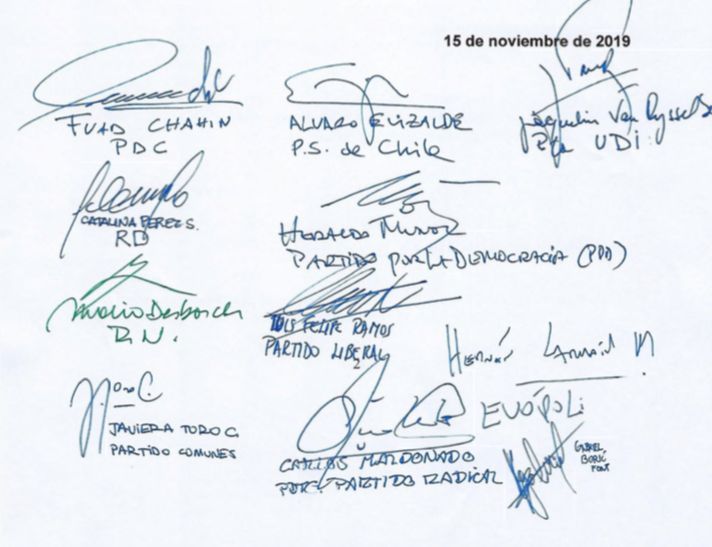 15 de noviembre de 2019
FUAD CHAHIN
PDC
ALVARO ELIZALDE
P.S. de Chile
Jaquelin Van Rysselbe
Pta UDI
CATALINA PEREZ S.
RD
HERALDO MUÑOZ
PARTIDO POR LA DEMOCRACIA (PPD)
Mario Desbordes
R.N.
LUIS FELIPE RAMOS
PARTIDO LIBERAL
Hernán Larraín M
EVÓPOLI
JAVIERA TORO C.
PARTIDO COMUNES
CARLOS MALDONADO
POR PARTIDO RADICAL
GABRIEL
BORIC
FONT